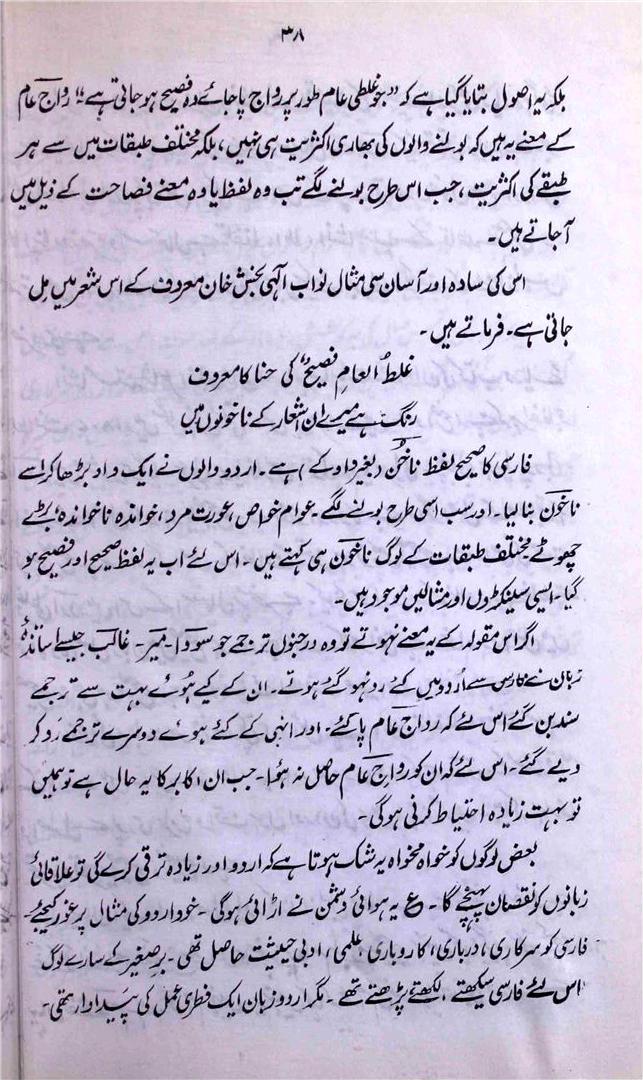 ۳۸
بلکہ یہ اصول بتایا گیا ہے کہ "جو غلطی عام طور پر رواج پا جائے وہ فصیح ہو جاتی ہے"۔ رواج عام
کے معنے یہ ہیں کہ بولنے والوں کی بھاری اکثریت ہی نہیں، بلکہ مختلف طبقات میں سے ہر
طبقے کی اکثریت، جب اس طرح بولنے لگے تب وہ لفظ یا وہ معنے فصاحت کے ذیل میں
آ جاتے ہیں۔
اس کی سادہ اور آسان سی مثال نواب الٰہی بخش خان معروف کے اس شعر میں مل
جاتی ہے۔ فرماتے ہیں۔
غلطُ العامِ فصیحٌ کی حنا کا معروف
رنگ ہے میرے ان اشعار کے ناخونوں میں
فارسی کا صحیح لفظ ناخُن (بغیر واو کے) ہے۔ اردو والوں نے ایک واو بڑھا کر اسے
ناخون بنا لیا۔ اور سب اسی طرح بولنے لگے۔ عوام خواص، عورت مرد، خواندہ ناخواندہ، بڑے
چھوٹے مختلف طبقات کے لوگ ناخون ہی کہتے ہیں۔ اس لئے اب یہ لفظ صحیح اور فصیح ہو
گیا۔ ایسی سینکڑوں اور مثالیں موجود ہیں۔
اگر اس مقولہ کے یہ معنے نہوتے تو وہ درجنوں ترجمے جو سودا۔ میر۔ غالب جیسے اساتذۂ
زبان نے فارسی سے اردو میں کئے رد نہو گئے ہوتے۔ ان کے کیے ہوئے بہت سے ترجمے
سند بن گئے اس لئے کہ رواج عام پا گئے۔ اور انہی کے کئے ہوئے دوسرے ترجمے رد کر
دیے گئے۔ اس لئے کہ ان کو رواجِ عام حاصل نہ ہوا۔ جب ان اکابر کا یہ حال ہے تو ہمیں
تو بہت زیادہ احتیاط کرنی ہوگی۔
بعض لوگوں کو خواہ مخواہ یہ شک ہوتا ہے کہ اردو اور زیادہ ترقی کرے گی تو علاقائی
زبانوں کو نقصان پہنچے گا۔ ع یہ ہوائی دشمن نے اڑائی ہوگی۔ خود اردو کی مثال پر غور کیجئے۔
فارسی کو سرکاری، درباری، کاروباری، علمی، ادبی حیثیت حاصل تھی۔ برِصغیر کے سارے لوگ
اس لئے فارسی سیکھتے، لکھتے پڑھتے تھے۔ مگر اردو زبان ایک فطری عمل کی پیداوار تھی۔